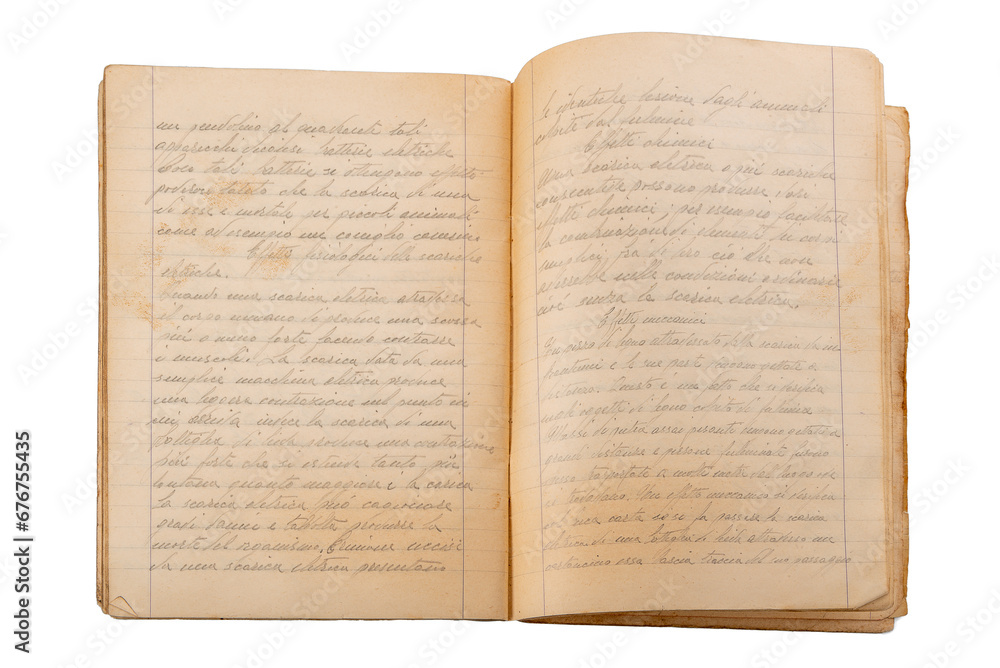 un pendolino al quadrante tali
apparecchi dicansi batterie elettriche
Con tali batterie si ottengono effetti
poderosi tanto che la scarica di una
di esse è mortale per piccoli animali
come ad esempio un coniglio comune
Effetti fisiologici delle scariche
elettriche.
Quando una scarica elettrica attraversa
il corpo umano si produce una scossa
più o meno forte facendo contrarre
i muscoli. La scarica data da una
semplice macchina elettrica produce
una leggera contrazione nel punto in
cui invece la scarica di una
bottiglia di leida produce una contrazione
più forte che si estende tanto più
lontana quanto maggiore è la carica
La scarica elettrica può cagionare
gravi danni e talvolta produrre la
morte del organismo. uccisi
da una scarica elettrica presentano
le identiche lesioni degli animali
colpiti dal fulmine
Effetti chimici
Una scarica elettrica o più scariche
consecutive possono produrre degli
effetti chimici, per esempio facilitare
la combinazione di elementi in corpi
semplici, ciò che non
avverrebbe nelle condizioni ordinarie
cioè senza la scarica elettrica.
Effetti meccanici
Un disco di legno attraversato dalla scarica
e le sue parti vengono gettate a
distanza. Questo è un fatto che si verifica
negli oggetti di legno colpiti di fulmine
Massi di pietra assai pesanti vengono gettati a
grandi distanze e persone fulminate furono
trasportate a molti metri dal luogo ove
si trovavano. Un effetto meccanico si verifica
carta se si fa passare la scarica
elettrica di una bottiglia di leida attraverso un
cartoncino essa lascia traccia del suo passaggio
Adobe Stock
676755435